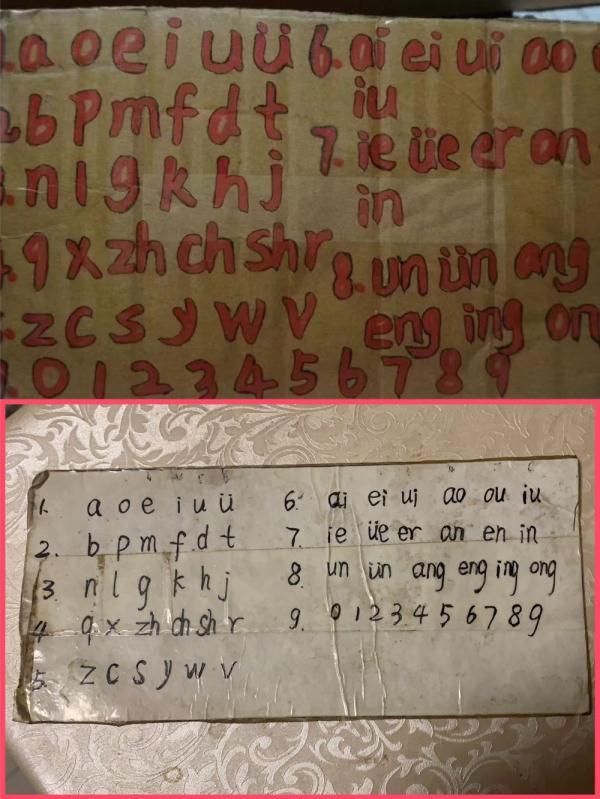 a o e i u ü 6. ai ei ui ao
iu
b p m f d t
7. ie üe er an
n l g k h j
in
q x zh ch sh r
8. un ün ang
z c s y w v
eng ing on
0 1 2 3 4 5 6 7 8 9
1. a o e i u ü 6. ai ei ui ao ou iu
2. b p m f d t 7. ie üe er an en in
3. n l g k h j 8. un ün ang eng ing ong
4. q x zh ch sh r 9. 0 1 2 3 4 5 6 7 8 9
5. z c s y w v